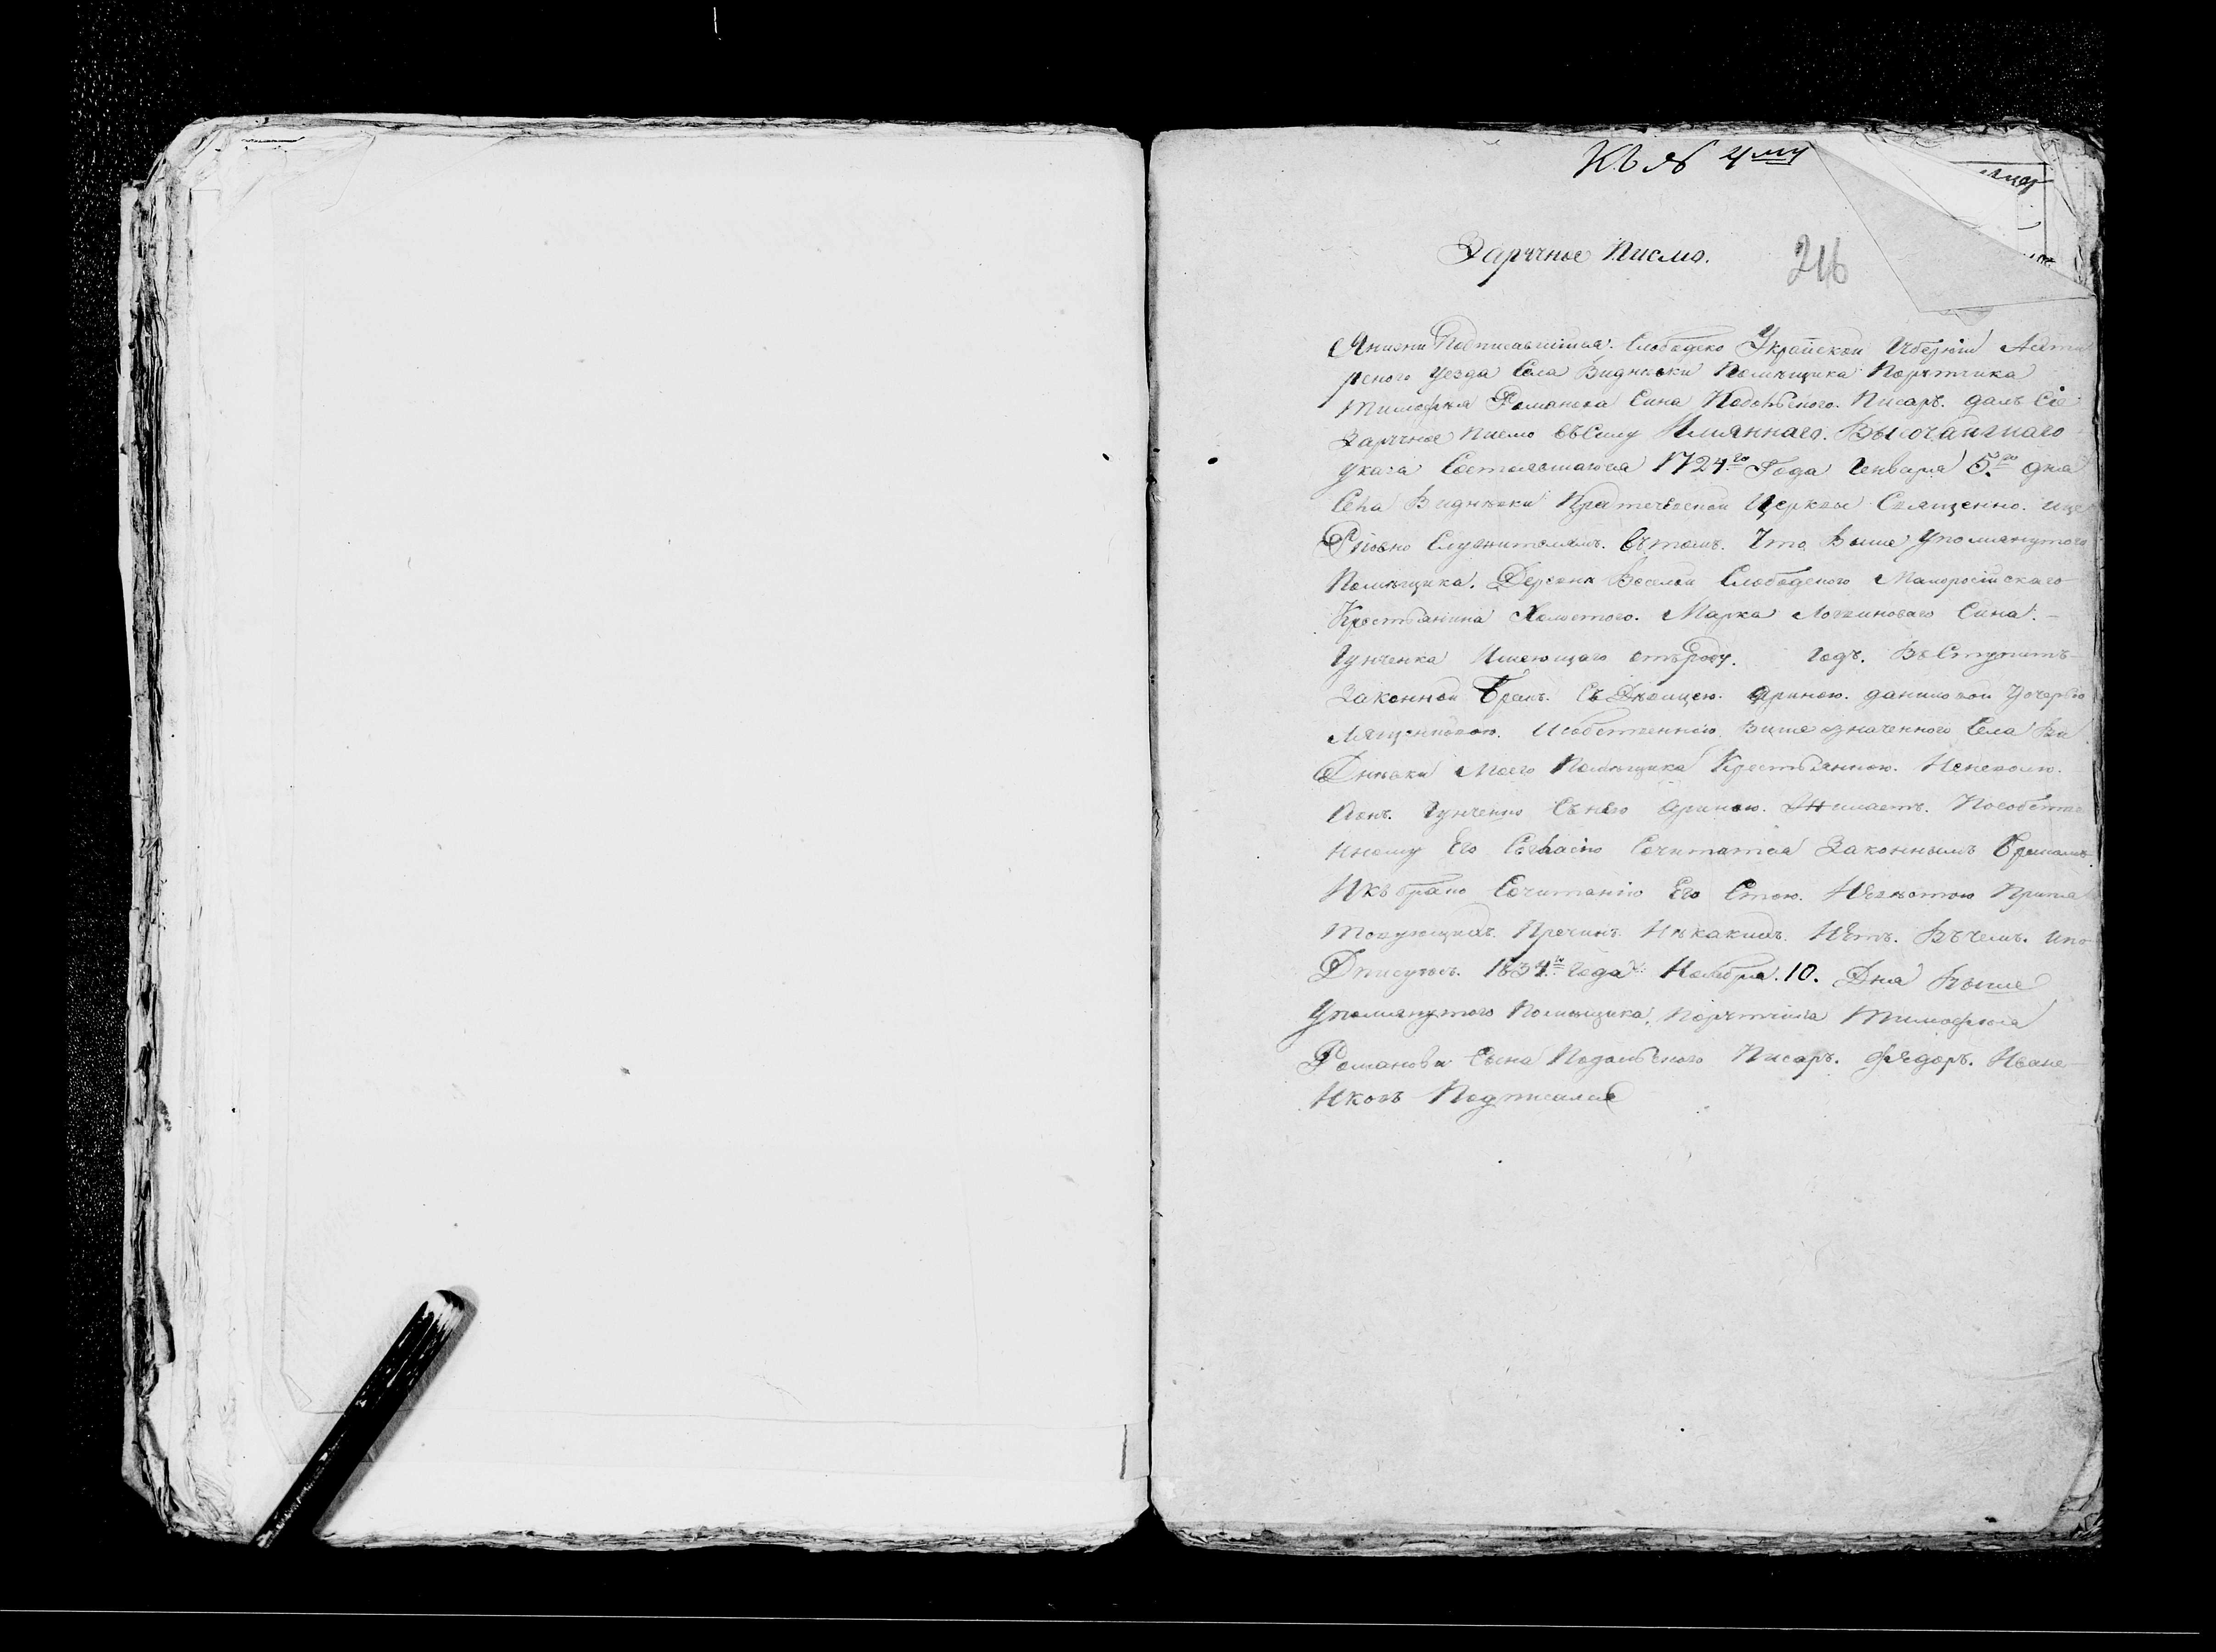 Къ № 4му
Заручное Писмо.
246
Я нижеи Подписавшийся. Слободско Украйнской Губернiи Ахти
рского уезда Села Видновки Помѣщика Порутчика
Тимофея Романова Сина Подольского. Писарь. далъ Сiе
Заручное писмо въ Силу Имяннаго. Высочайшаго
указа Состоявшагося 1724го Года Генваря 5го дня
Села Видновки Предтечевской Церкви Священно. и це
Рковно Служителямъ. въ томъ. Что Выше Упомянутого
Помѣщика. Деревни Веселой Слободского Малоросiйскаго
Крестьянина Холостого. Марка Логвинова Сина.
Гунченка Имеющаго отъ роду. годъ. Въ Ступитъ
Законной Бракъ. Съ Девицею. Ариною. даниловой дочерью
собственною Више означенного Села Ви
Дновки Моего Помѣщика Крестьянкою.
Гунченко Ариною. Желаетъ. По собстве
нному Его Согласiю Сочитатся Законнымъ Бракомъ.
И къ брако Сочитанiю Его Стою. Невѣстою Препя
тствующихъ. Пречинъ. Нѣкакихъ. Нѣтъ. Въ чемъ. и по
Дписуюсь. 1834го Года. Ноября. 10. Дня Выше
Упомянутого Помѣщика. Порутчика Тимофея
Романова Сына Подольского Писарь. Федоръ. Иване
нковъ Подписался